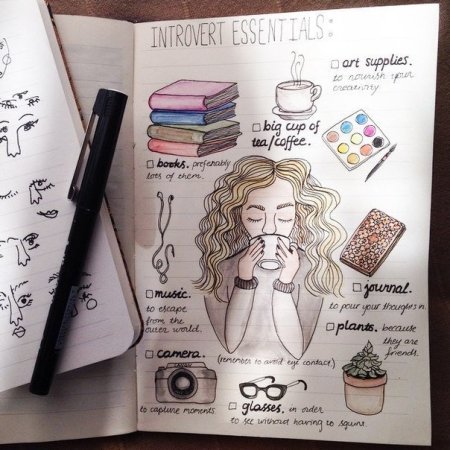 INTROVERT ESSENTIALS:
□ art supplies.
to nourish your
creativity
□ big cup of
tea/coffee.
□ books. preferably
lots of them.
□ music.
to escape
from the
outer world.
□ journal.
to pour your thoughts in.
□ plants. because
they are
friends.
□ camera.
(remember to avoid eye contact)
to capture moments
□ glasses. in order
to see without having to squint.